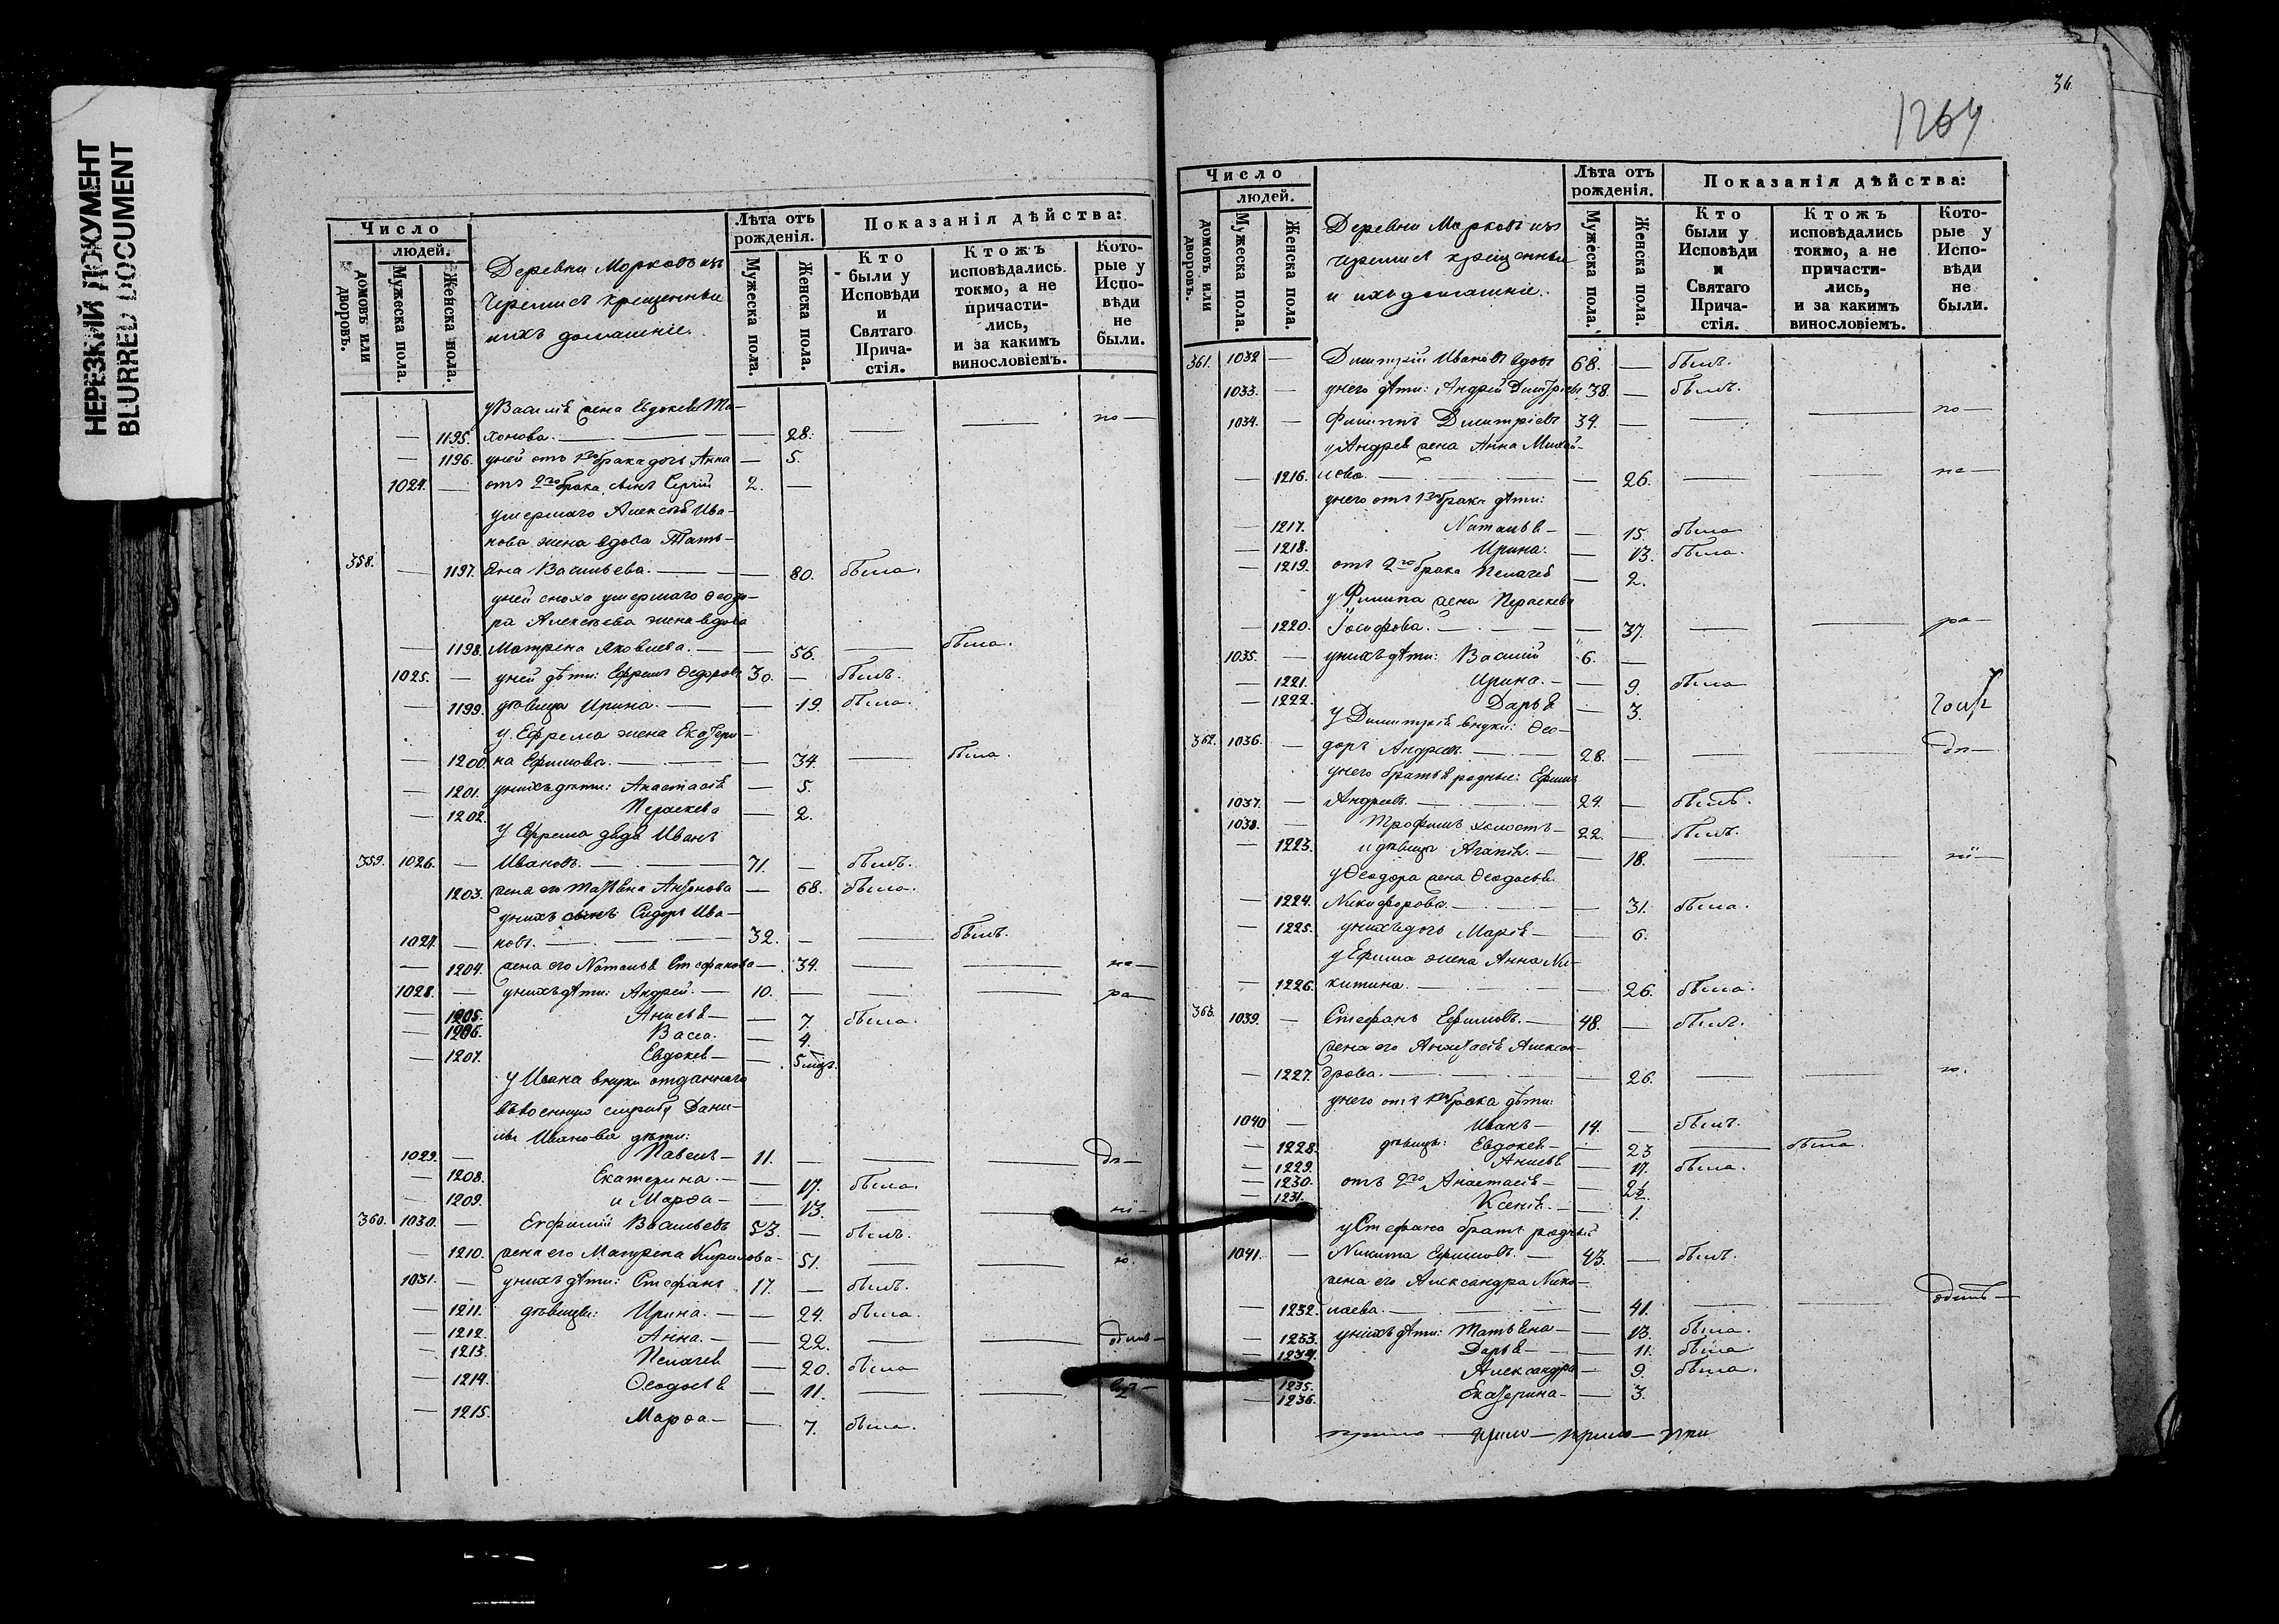 НЕРЕЗКИЙ ДОКУМЕНТ
BLURRED DOCUMENT
Число
людей.
домовъ или дворовъ.
Мужеска пола.
Женска пола.
Деревни Морковъ изъ
черемисъ крещенные
и ихъ домашніе.
Лѣта отъ рожденія.
Мужеска пола.
Женска пола.
Показанія дѣйства:
Кто были у Исповѣди и Святаго Прича-стія.
Ктожъ исповѣдались токмо, а не причасти-лись, и за какимъ винословіемъ.
Кото-рые у Испо-вѣди не были.
у Василія жена Евдокея
1195. хонова. 28. по
1196. у ней отъ 1го брака дочь Анна 5.
1024. отъ 2го брака сынъ Сергій 2.
умершаго Алексѣя Ива-
нова жена вдова Тать-
358. 1197. яна Васильева. 80. была.
у ней сноха умершаго Ѳеодо-
ра Алексѣева жена вдова
1198. Матрена Яковлева. 56. была.
1025. у ней дѣти: Ефремъ Ѳедоровъ 30. былъ.
1199. дѣвица Ирина. 19. была.
у Ефрема жена Екатери-
1200. на Ефимова. 34. была.
1201. у нихъ дѣти: Анастасія 5.
1202. Параскева 2.
у Ефрема дядя Иванъ
359. 1026. Ивановъ. 71. былъ.
1203. жена его Татіяна Антонова 68. была.
у нихъ сынъ: Сидоръ Ива-
1027. новъ. 32. былъ.
1204. жена его Наталья Стефанова 34. не
1028. у нихъ дѣти: Андрей. 10. ра
1205. Анисья 7. была.
1206. Васса. 4.
1207. Евдокея 5 мцъ.
у Ивана внуки отданнаго
въ военную службу Дани-
ла Иванова дѣти:
1029. Павелъ 11. дп
1208. Екатерина. 17. была.
1209. и Марѳа 13. ні
360. 1030. Евфимій Васильевъ 53. былъ.
1210. жена его Матрена Кирилова 51. ю.
1031. у нихъ дѣти: Стефанъ 17. былъ.
1211. дѣвицы: Ирина. 24. была.
1212. Анна. 22.
1213. Пелагея 20. была
1214. Ѳеодосья 11.
1215. Марѳа 7. была.
36
1264
Число
людей.
домовъ или дворовъ.
Мужеска пола.
Женска пола.
Деревни Марковъ изъ
черемисъ крещенные
и ихъ домашніе.
Лѣта отъ рожденія.
Мужеска пола.
Женска пола.
Показанія дѣйства:
Кто были у Исповѣди и Святаго Прича-стія.
Ктожъ исповѣдались токмо, а не причасти-лись, и за какимъ винословіемъ.
Кото-рые у Испо-вѣди не были.
361. 1032 Димитрій Ивановъ вдовъ 68. былъ.
1033. у него дѣти: Андрей Димтріевъ 38. былъ.
1034. Филиппъ Димитріевъ 34. по
у Андрея жена Анна Михай-
1216. лова. 26. не
у него отъ 1го брака дѣти:
1217. Наталья 15. была
1218. Ирина. 13. была.
1219. отъ 2го брака Пелагея 2.
у Филипа жена Параскева
1220. Іосифова. 37. ра
1035. у нихъ дѣти: Василій 6.
1221. Ирина. 9. была
1222. Дарья 3.
у Димитрія внуки: Ѳео-
362. 1036. доръ Андреевъ 28. дп
у него братья родные: Ефимъ
1037. Андреевъ. 24. былъ.
1038. Трофимъ холостъ 22. былъ.
1223. и дѣвица Агапія. 18. ні
у Ѳеодора жена Ѳеодосья
1224. Никифорова. 31. была.
1225. у нихъ дочь Марія 6.
у Ефима жена Анна Ни-
1226. китина. 26. была.
363. 1039. Стефанъ Ефимовъ. 48. былъ.
жена его Анастасія Алексан-
1227. дрова. 26. ю.
у него отъ 1го брака дѣти:
1040 Иванъ 14. былъ.
1228. дѣвицы: Евдокея 23 была
1229. Анисья 17. была.
1230. отъ 2го Анастасія 2½.
1231. Ксенія. 1.
у Стефана братъ родный
1041. Никита Ефимовъ. 43. былъ.
жена его Александра Нико-
1232. лаева. 41.
1233. у нихъ дѣти: Татьяна 13. была.
1234. Дарья 11. была
1235. Александра 9. была.
1236. Екатерина 3.